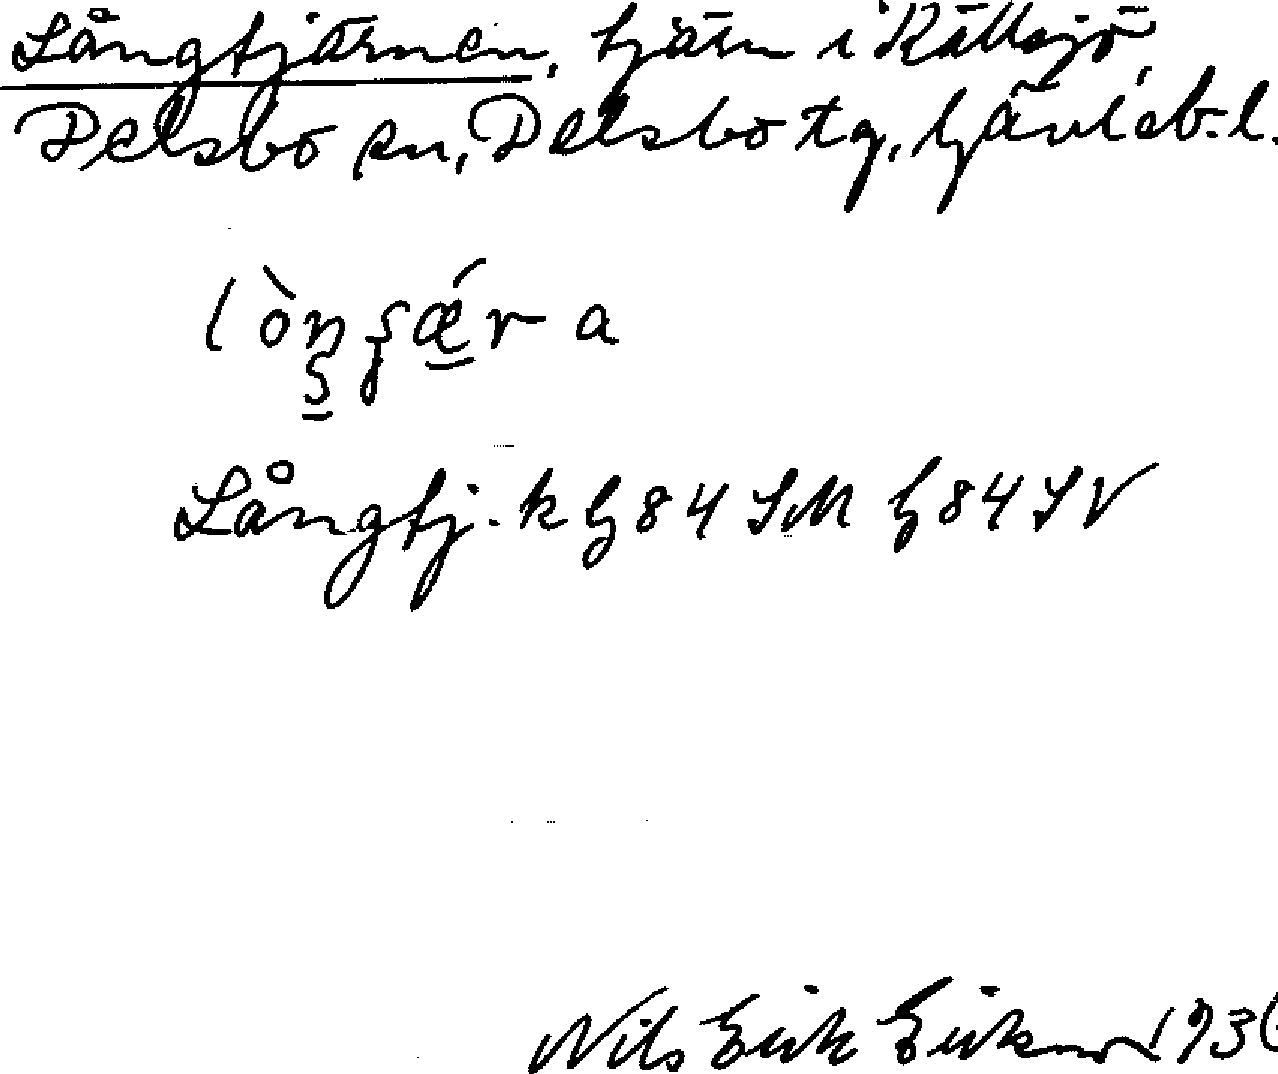 Långtjärnen, tjärn i Källsjö,
Delsbo sn, Delsbo tg, Gävleb. l.
Långtj. k G 84 SM G 84 SV
Nils Erik Erikson 193